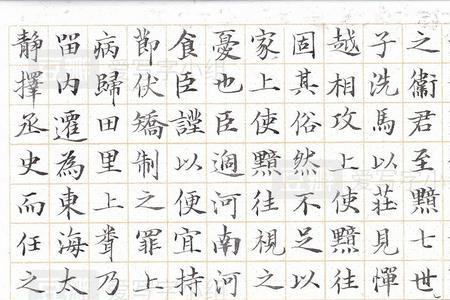 之衞君至黯七世
子洗馬以莊見憚
越相攻上使黯往
固其俗然不足以
家上使黯往視之
憂也臣過河南河
食臣謹以便宜持
節伏矯制之罪上
病歸田里上聞乃
畱内遷為東海太
靜擇丞史而任之